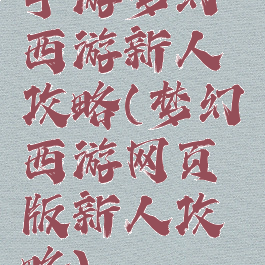 手游梦幻
西游新人
攻略(梦幻
西游网页
版新人攻
略)